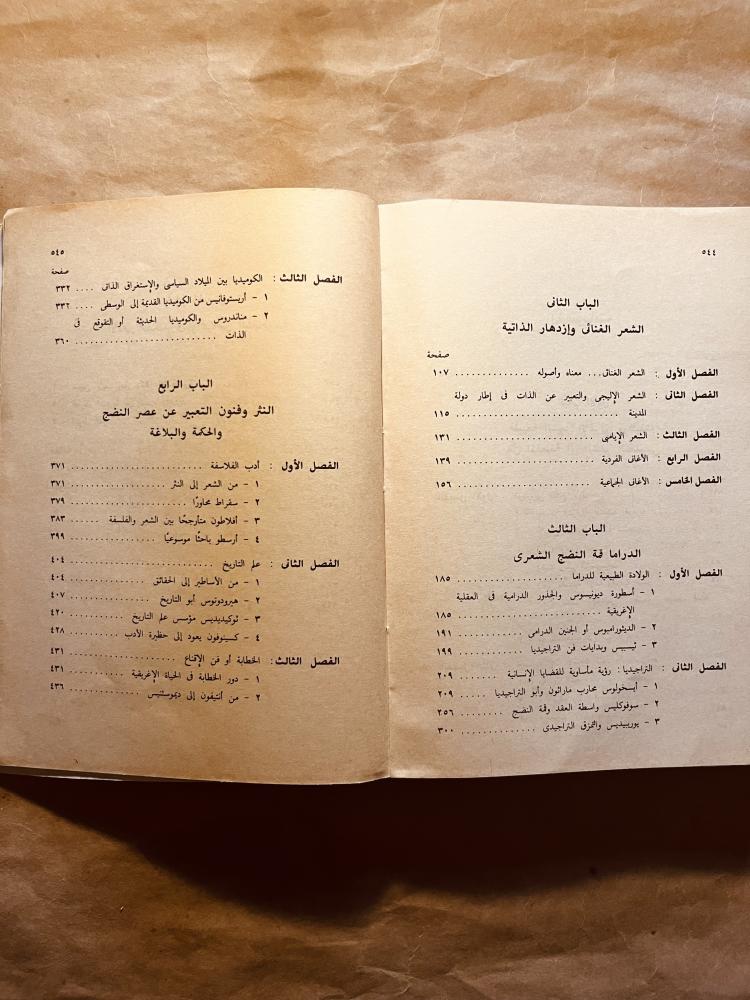 ٥٤٤
الباب الثانى
الشعر الغنائى وإزدهار الذاتية
صفحة
الفصل الأول : الشعر الغنائى... معناه وأصوله .............. ١٠٧
الفصل الثانى : الشعر الإليجى والتعبير عن الذات فى إطار دولة
المدينة .............................. ١١٥
الفصل الثالث : الشعر الإيامبى ......................... ١٣١
الفصل الرابع : الأغانى الفردية ......................... ١٣٩
الفصل الخامس : الأغانى الجماعية ........................ ١٥٦
الباب الثالث
الدراما قمة النضج الشعرى
الفصل الأول : الولادة الطبيعية للدراما .................... ١٨٥
١ - أسطورة ديونيسوس والجذور الدرامية فى العقلية
الإغريقية ......................... ١٨٥
٢ - الديثورامبوس أو الجنين الدرامى ............ ١٩١
٣ - ثيسبيس وبدايات فن التراجيديا ............ ١٩٩
الفصل الثانى : التراجيديا : رؤية مأساوية للقضايا الإنسانية ........ ٢٠٩
١ - أيسخولوس محارب ماراثون وأبو التراجيديا ..... ٢٠٩
٢ - سوفوكليس واسطة العقد وقمة النضج ........ ٢٥٦
٣ - يوريبيديس والتمزق التراجيدى .............. ٣٠٠
٥٤٥
صفحة
الفصل الثالث : الكوميديا بين الميلاد السياسى والإستغراق الذاتى .... ٣٣٢
١ - أريستوفانيس من الكوميديا القديمة إلى الوسطى .... ٣٣٢
٢ - مناندروس والكوميديا الحديثة أو التقوقع فى
الذات ............................ ٣٦٠
الباب الرابع
النثر وفنون التعبير عن عصر النضج
والحكمة والبلاغة
الفصل الأول : أدب الفلاسفة ........................ ٣٧١
١ - من الشعر إلى النثر ................. ٣٧١
٢ - سقراط محاورًا ...................... ٣٧٩
٣ - أفلاطون متأرجحًا بين الشعر والفلسفة ...... ٣٨٣
٤ - أرسطو باحثًا موسوعيًا ............... ٣٩٩
الفصل الثانى : علم التاريخ .......................... ٤٠٤
١ - من الأساطير إلى الحقائق .............. ٤٠٤
٢ - هيرودوتوس أبو التاريخ ............... ٤٠٧
٣ - ثوكيديديس مؤسس علم التاريخ .......... ٤٢٠
٤ - كسينوفون يعود إلى حظيرة الأدب ......... ٤٢٨
الفصل الثالث : الخطابة أو فن الإقناع .................... ٤٣١
١ - دور الخطابة فى الحياة الإغريقية .......... ٤٣١
٢ - من أنتيفون إلى ديموسثنيس ............. ٤٣٦